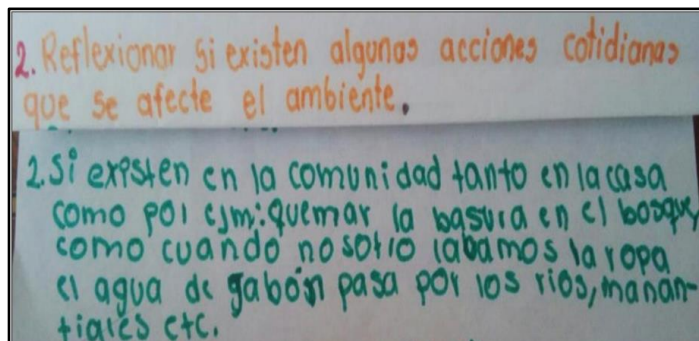 2. Reflexionar si existen algunas acciones cotidianas
que se afecte el ambiente.
2. Si existen en la comunidad tanto en la casa
como por ejm: quemar la basura en el bosque,
como cuando nosotro labamos la ropa
el agua de gabón pasa por los rios, manan-
tiales etc.